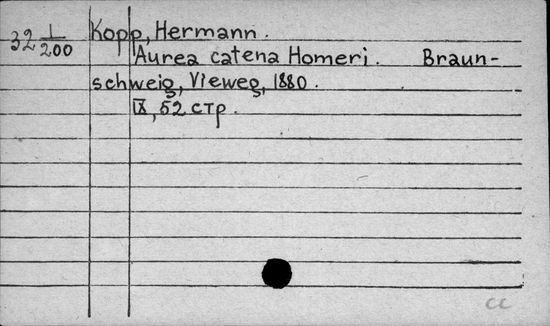 32 1/200 Kopp, Hermann.
Aurea catena Homeri. Braun-
schweig, Vieweg, 1880.
IX, 52 стр.
cc